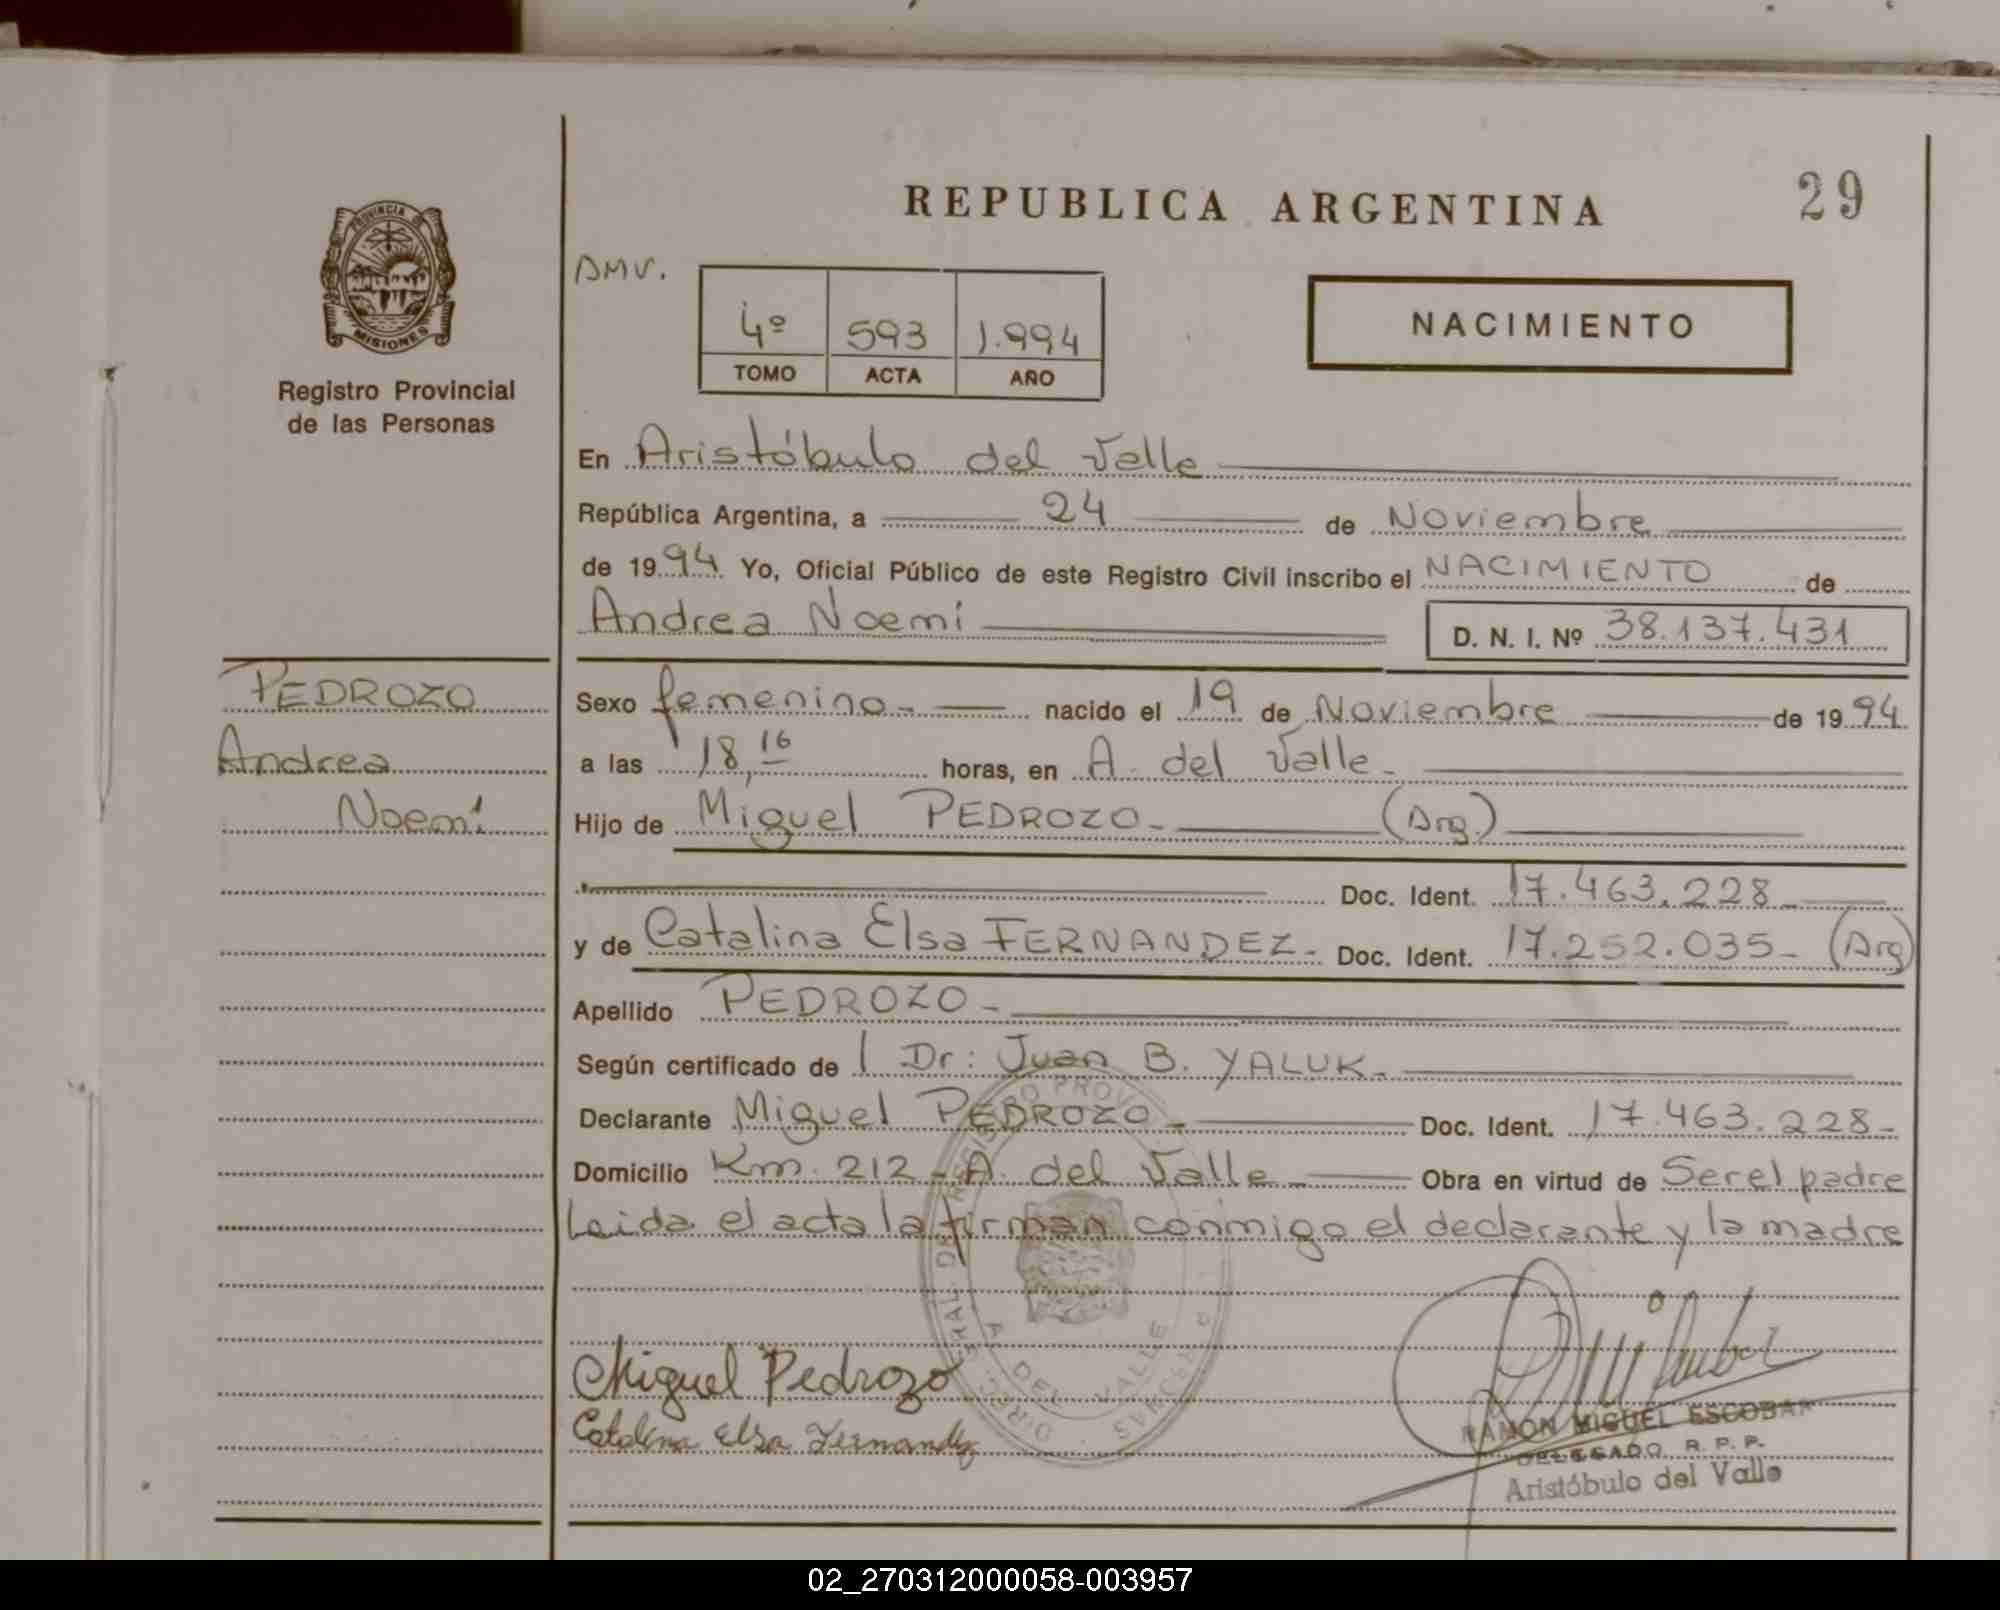 REPUBLICA ARGENTINA
29
PROVINCIA DE
MISIONES
Registro Provincial
de las Personas
DMV.
4º 593 1.994
TOMO ACTA AÑO
NACIMIENTO
En Aristóbulo del Valle
República Argentina, a 24 de Noviembre
de 1994 Yo, Oficial Público de este Registro Civil inscribo el NACIMIENTO de
Andrea Noemí D. N. I. Nº 38.137.431
PEDROZO
Andrea
Noemí
Sexo femenino.- nacido el 19 de Noviembre de 1994
a las 18,16 horas, en A. del Valle.
Hijo de Miguel PEDROZO- (Arg.)
Doc. Ident. 17.463.228-
y de Catalina Elsa FERNANDEZ.- Doc. Ident. 17.252.035- (Arg)
Apellido PEDROZO-
Según certificado de l Dr: Juan B. YALUK.-
Declarante Miguel PEDROZO- Doc. Ident. 17.463.228-
Domicilio Km. 212 - A. del Valle Obra en virtud de Ser el padre
Leida el acta la firman conmigo el declarante y la madre
Miguel Pedrozo
Catalina Elsa Fernandez
A. DEL VALLE
RAMON MIGUEL ESCOBAR
DELEGADO R. P. P.
Aristóbulo del Valle
02_270312000058-003957